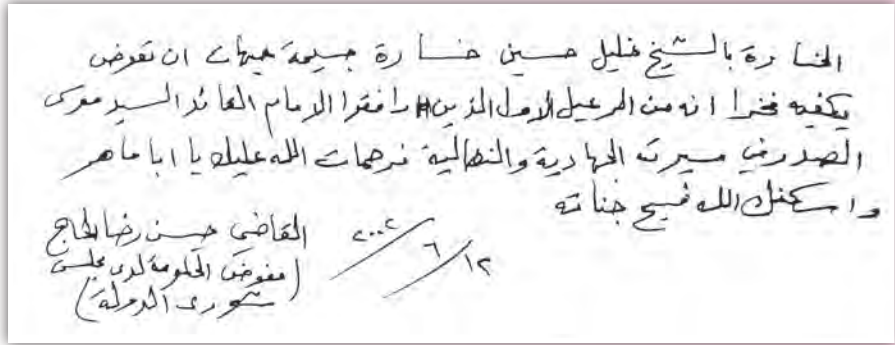 الخسارة بالشيخ خليل حسين خسارة جسيمة هيهات ان تعوض
يكفيه فخرا انه من الرعيل الاول الذين رافقوا الامام القائد السيد موسى
الصدر في مسيرته الجهادية والنضالية فرحمات الله عليك يا ابا ماهر
واسكنك الله فسيح جناته
القاضي حسن رضا الحاج
(مفوض الحكومة لدى مجلس
شورى الدولة)
١٢/٦/٢٠٠٢